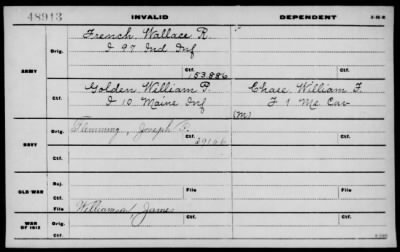 48913
INVALID
DEPENDENT
French, Wallace R.
Orig.
I 97 Ind Inf
Ctf.
153.886
ARMY
Golden William P.
Chase, William F.
Ctf.
I 10 Maine Inf
F 1 Me Cav
(M)
Flemming, Joseph
Orig.
Ctf.
NAVY
Ctf.
Surj.
Ctf.
File
File
OLD WAR
File
Williamson, James
WAR OF 1812
Orig.
Ctf.
Ctf.